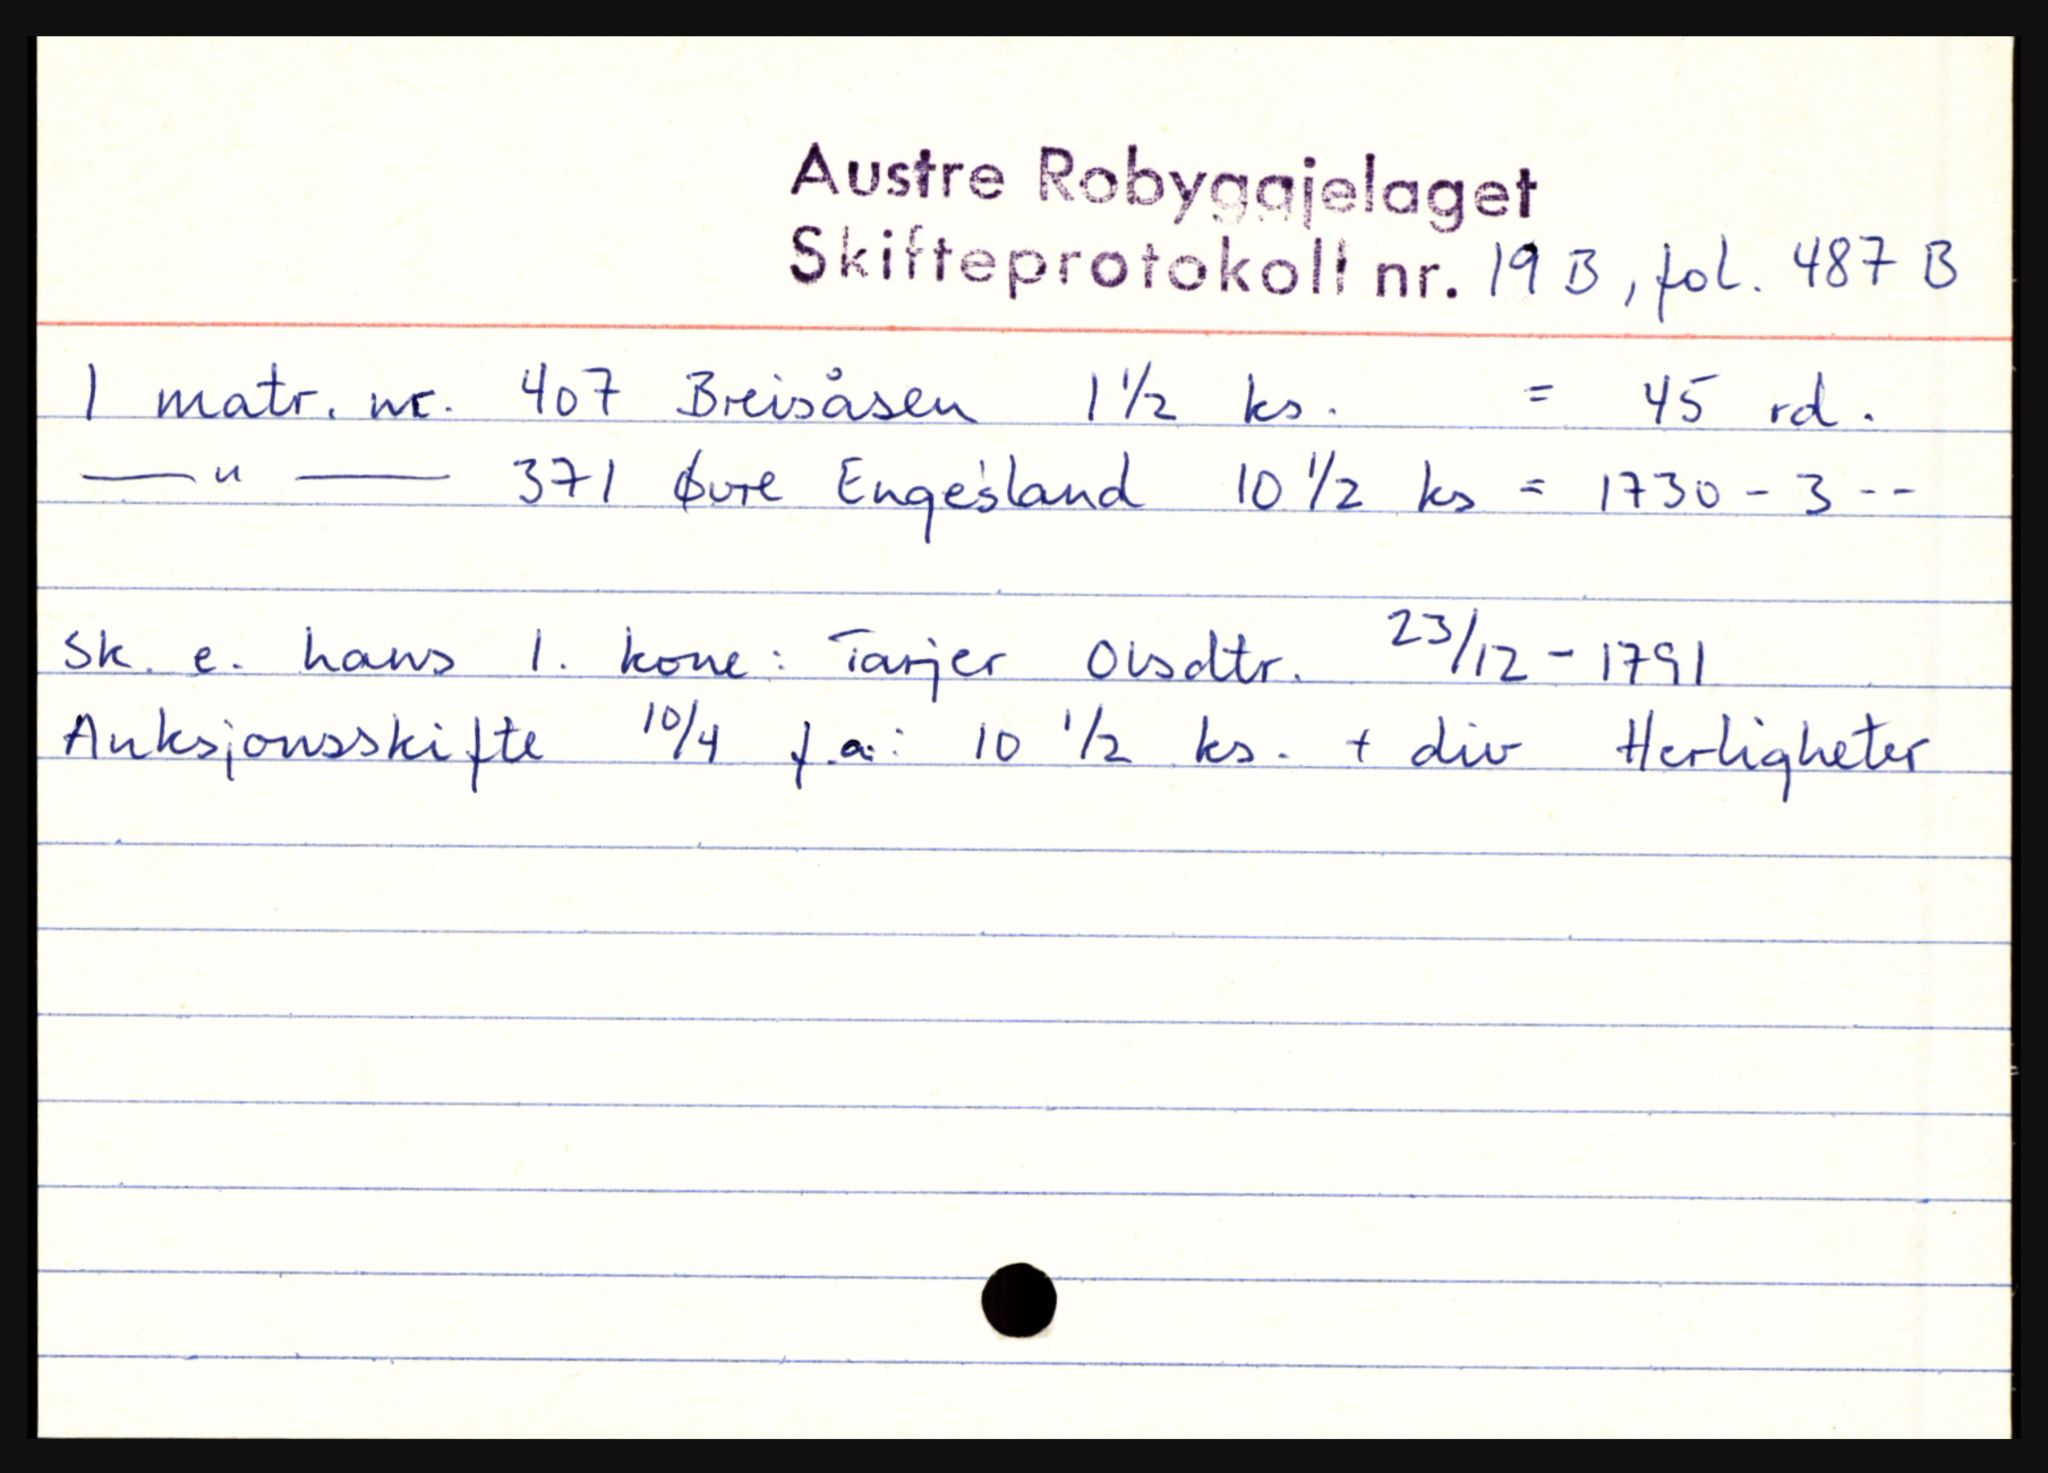 Austre Robyggjelaget
Skifteprotokoll nr. 19 B, fol. 487 B
1 matr. nr. 407 Breisåsen 1 1/2 ks. = 45 rd.
—— " —— 371 Øvre Engesland 10 1/2 ks = 1730 - 3 --
Sk. e. hans 1. kone: Tarjer Olsdtr. 23/12 - 1791
Auksjonsskifte 10/4 f.a: 10 1/2 ks. + div Herligheter